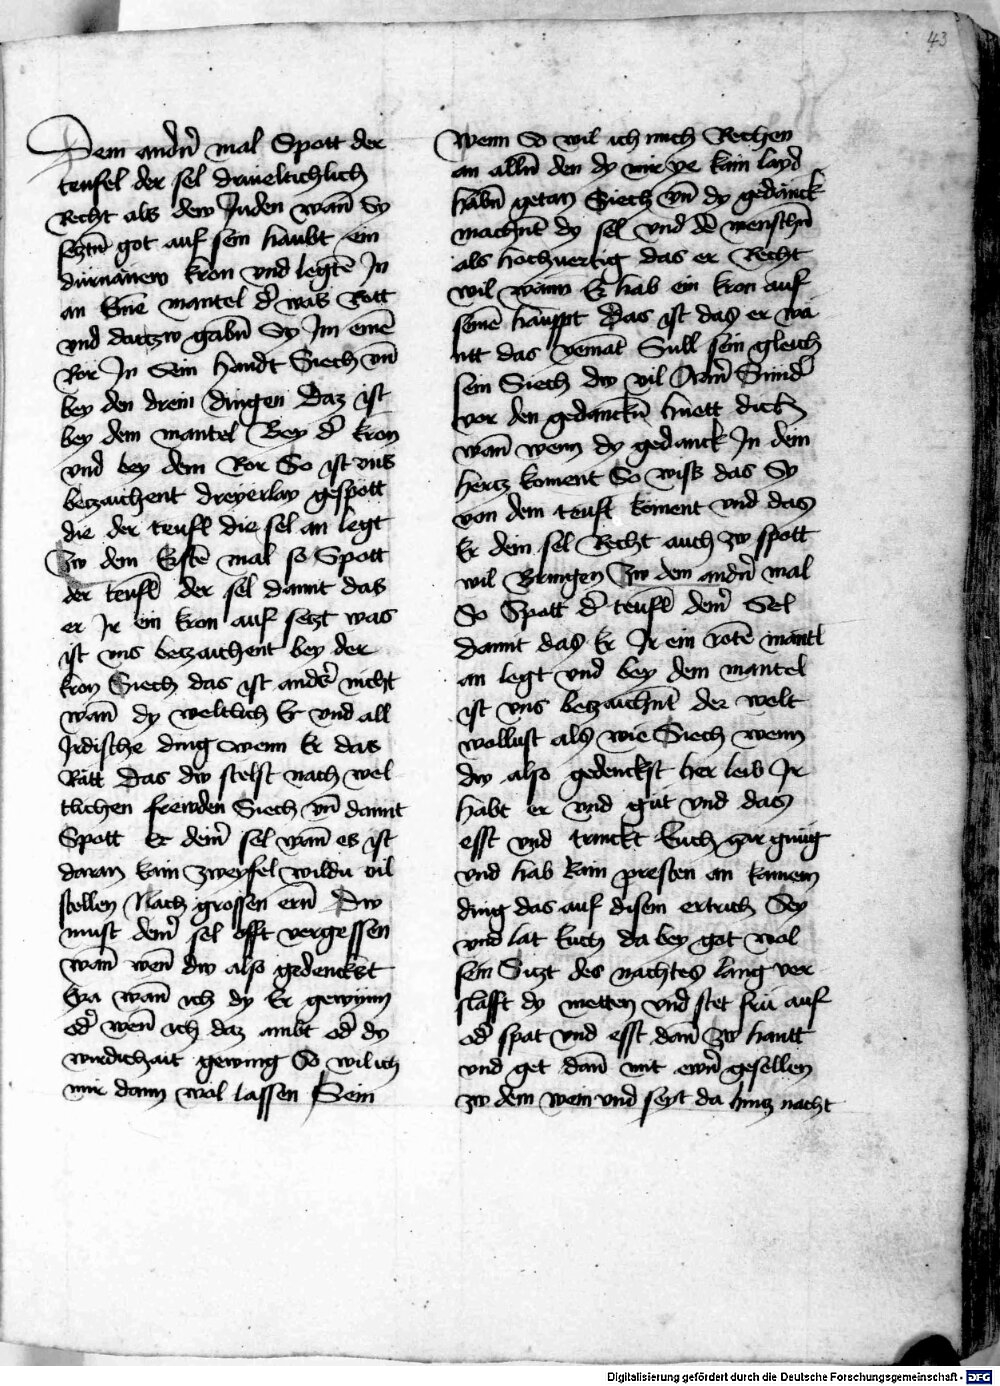 43
Dem andn̄ mal Spott der
teufel der sel driueltichlich
Recht als dew Juden wan̄ Sy
seztn̄ got auf sein haubt ein
dürnānew kron vnd legtē Jn
an Ein̄e mantel d' was Rott
vnd datzw gabn̄ Sy Jm einē
Ror Jn Sein handt Siech vn̄
bey den drein dingen Daz ist
bey dem mantel Bey d' kron
vnd bey dem Ror So ist vns
betzaichent dreyerlay gespott
die der teufl die sel an legt
Zw dem Erstē mal so Spott
der teufl der sel damit das
er Jr ein kron auf setzt was
ist vns betzaichent bey der
kron Siech das ist anders nicht
wan̄ dy weltlich Er vnd all
Jrdische ding wenn Er das
Rātt Das dw stelst nach wel
tlichen frewden Siech vn̄ damit
Spott Er deinr̄ sel wan̄ es ist
daran kain zweyfel wildu vil
stellen Nach grossen ern̄ Dw
must deinr̄ sel offt vergessen
wan̄ wen̄ dw also gedenckst
Eya wan̄ ich dy Er gewynn
od' wen̄ ich daz ambt od' dy
wirdichait gewing So wil ich
mir dann wal lassen Sein
Wenn So wil ich mich Rechen
an alln̄ den dy mir ye kain layd
habn̄ getan Siech vn̄ dy gedänck
machnt dy sel vnd dē menschn̄
als hochuertig das er Recht
wil wänn Er hab ein kron auf
seinē haupt Das ist das er wā
nt das yemāt Sull sein gleich
sein Siech dw vil Arm̄ Sünd'
vor den gedanckn̄ huett dich
wan̄ wenn dy gedanck Jn dein
hertz koment So wiss das Sy
von dem teufl koment vnd das
Er dein sel Recht auch zw spott
wil Bringen Zw dem andn̄ mal
So Spott d' teufl deinr̄ Sel
damit das Er Jr ein rotē mantl
an legt vnd bey dem mantel
ist vns betzaichnt der welt
wollust als wie Siech wenn
dw also gedenckst her leib Jr
habt er vnd güt vnd das
esst vnd trinckt Euch gar gnüg
vnd hab kain presten an kainem
ding das auf disem ertrich Sey
vnd lat Euch da bey got wol
sein Sizt des nachtes lāng ver
slafft dy metten vnd stet frü auf
od' spat vnd esst dan̄ zw hantt
vnd get dan̄ mit ewrn̄ gesellen
zw dem wein vnd seyt da hintz nacht
Digitalisierung gefördert durch die Deutsche Forschungsgemeinschaft - DFG